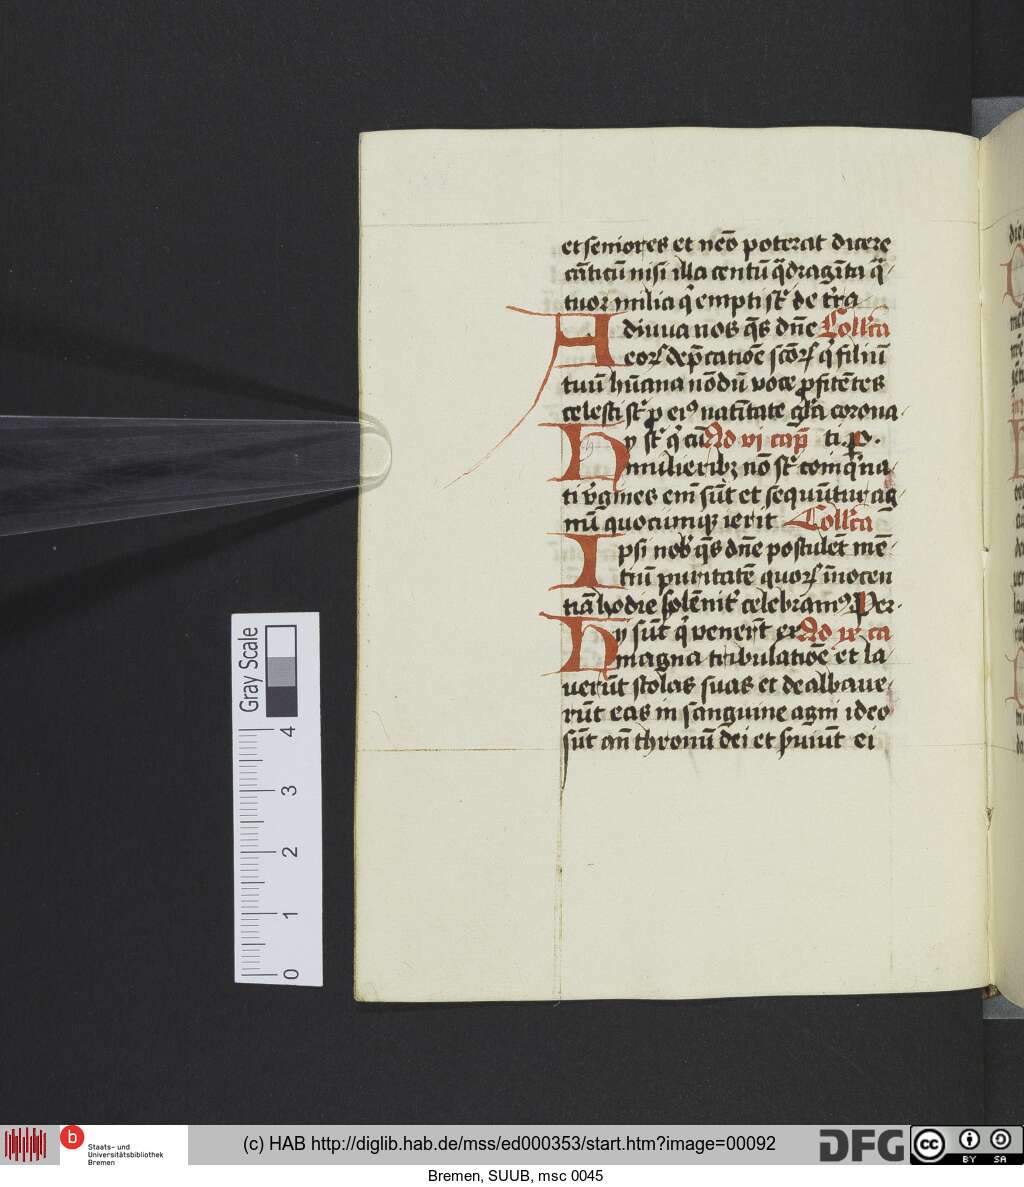 et seniores et neō poterat dicere
cāticū nisi illa centū q̄dragīta q̄
tuor milia q̇ empti st̄ de t̄ra
Adiuua nos q̄s dn̄e Coll̄ca
eorꝝ dep̄catiōe sc̄orꝝ q̇ filiū
tuū hūana nōdū voce ꝓfitētes
celesti st̄ ꝓ eiꝰ natīitate gl̄a corona
Hy st̄ q̇ cū Ad vi cap̄ ti.
mulieribꝫ nō st̄ coinq̇na
ti v̄gines em̄ sūt et sequūtur ag
nū quocumqꝫ ierit Coll̄ca
Ipsi nob̄ q̄s dn̄e postulēt mē
tiū puritatē quorꝝ īnocen
tiā hodie solēnit̄ celebramꝰ Per
Hy sūt q̇ venerūt ex Ad ix ca
magna tribulatiōe et la
uerūt stolas suas et dealbaue
rūt eas in sanguine agni ideo
sūt an̄ thronū dei et s̄uiūt ei
Gray Scale
4
3
2
1
0
b Staats- und
Universitätsbibliothek
Bremen
(c) HAB http://diglib.hab.de/mss/ed000353/start.htm?image=00092
DFG
cc BY SA
Bremen, SUUB, msc 0045